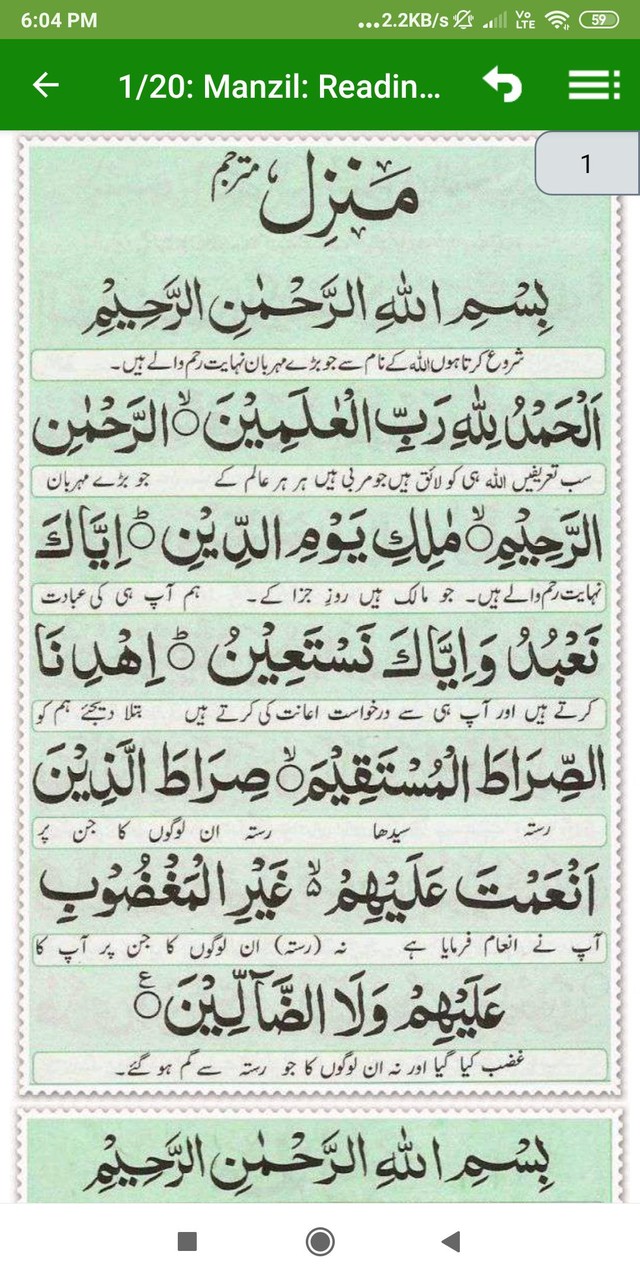 6:04 PM ...2.2KB/s Vo LTE 59
1/20: Manzil: Readin...
1
مَنزِل مترجم
بِسْمِ اللّٰهِ الرَّحْمٰنِ الرَّحِيْمِ
شروع کرتا ہوں اللہ کے نام سے جو بڑے مہربان نہایت رحم والے ہیں۔
اَلْحَمْدُ لِلّٰهِ رَبِّ الْعٰلَمِيْنَ ۙ الرَّحْمٰنِ
سب تعریفیں اللہ ہی کو لائق ہیں جو مربی ہیں ہر ہر عالم کے جو بڑے مہربان
الرَّحِيْمِ ۙ مٰلِكِ يَوْمِ الدِّيْنِ ؕ اِيَّاكَ
نہایت رحم والے ہیں۔ جو مالک ہیں روزِ جزا کے۔ ہم آپ ہی کی عبادت
نَعْبُدُ وَاِيَّاكَ نَسْتَعِيْنُ ؕ اِهْدِنَا
کرتے ہیں اور آپ ہی سے درخواست اعانت کی کرتے ہیں بتلا دیجئے ہم کو
الصِّرَاطَ الْمُسْتَقِيْمَ ۙ صِرَاطَ الَّذِيْنَ
رستہ سیدھا رستہ ان لوگوں کا جن پر
اَنْعَمْتَ عَلَيْهِمْ ۙ۬ غَيْرِ الْمَغْضُوْبِ
آپ نے انعام فرمایا ہے نہ (رستہ) ان لوگوں کا جن پر آپ کا
عَلَيْهِمْ وَلَا الضَّآلِّيْنَ ۧ
غضب کیا گیا اور نہ ان لوگوں کا جو رستہ سے گم ہو گئے۔
بِسْمِ اللّٰهِ الرَّحْمٰنِ الرَّحِيْمِ